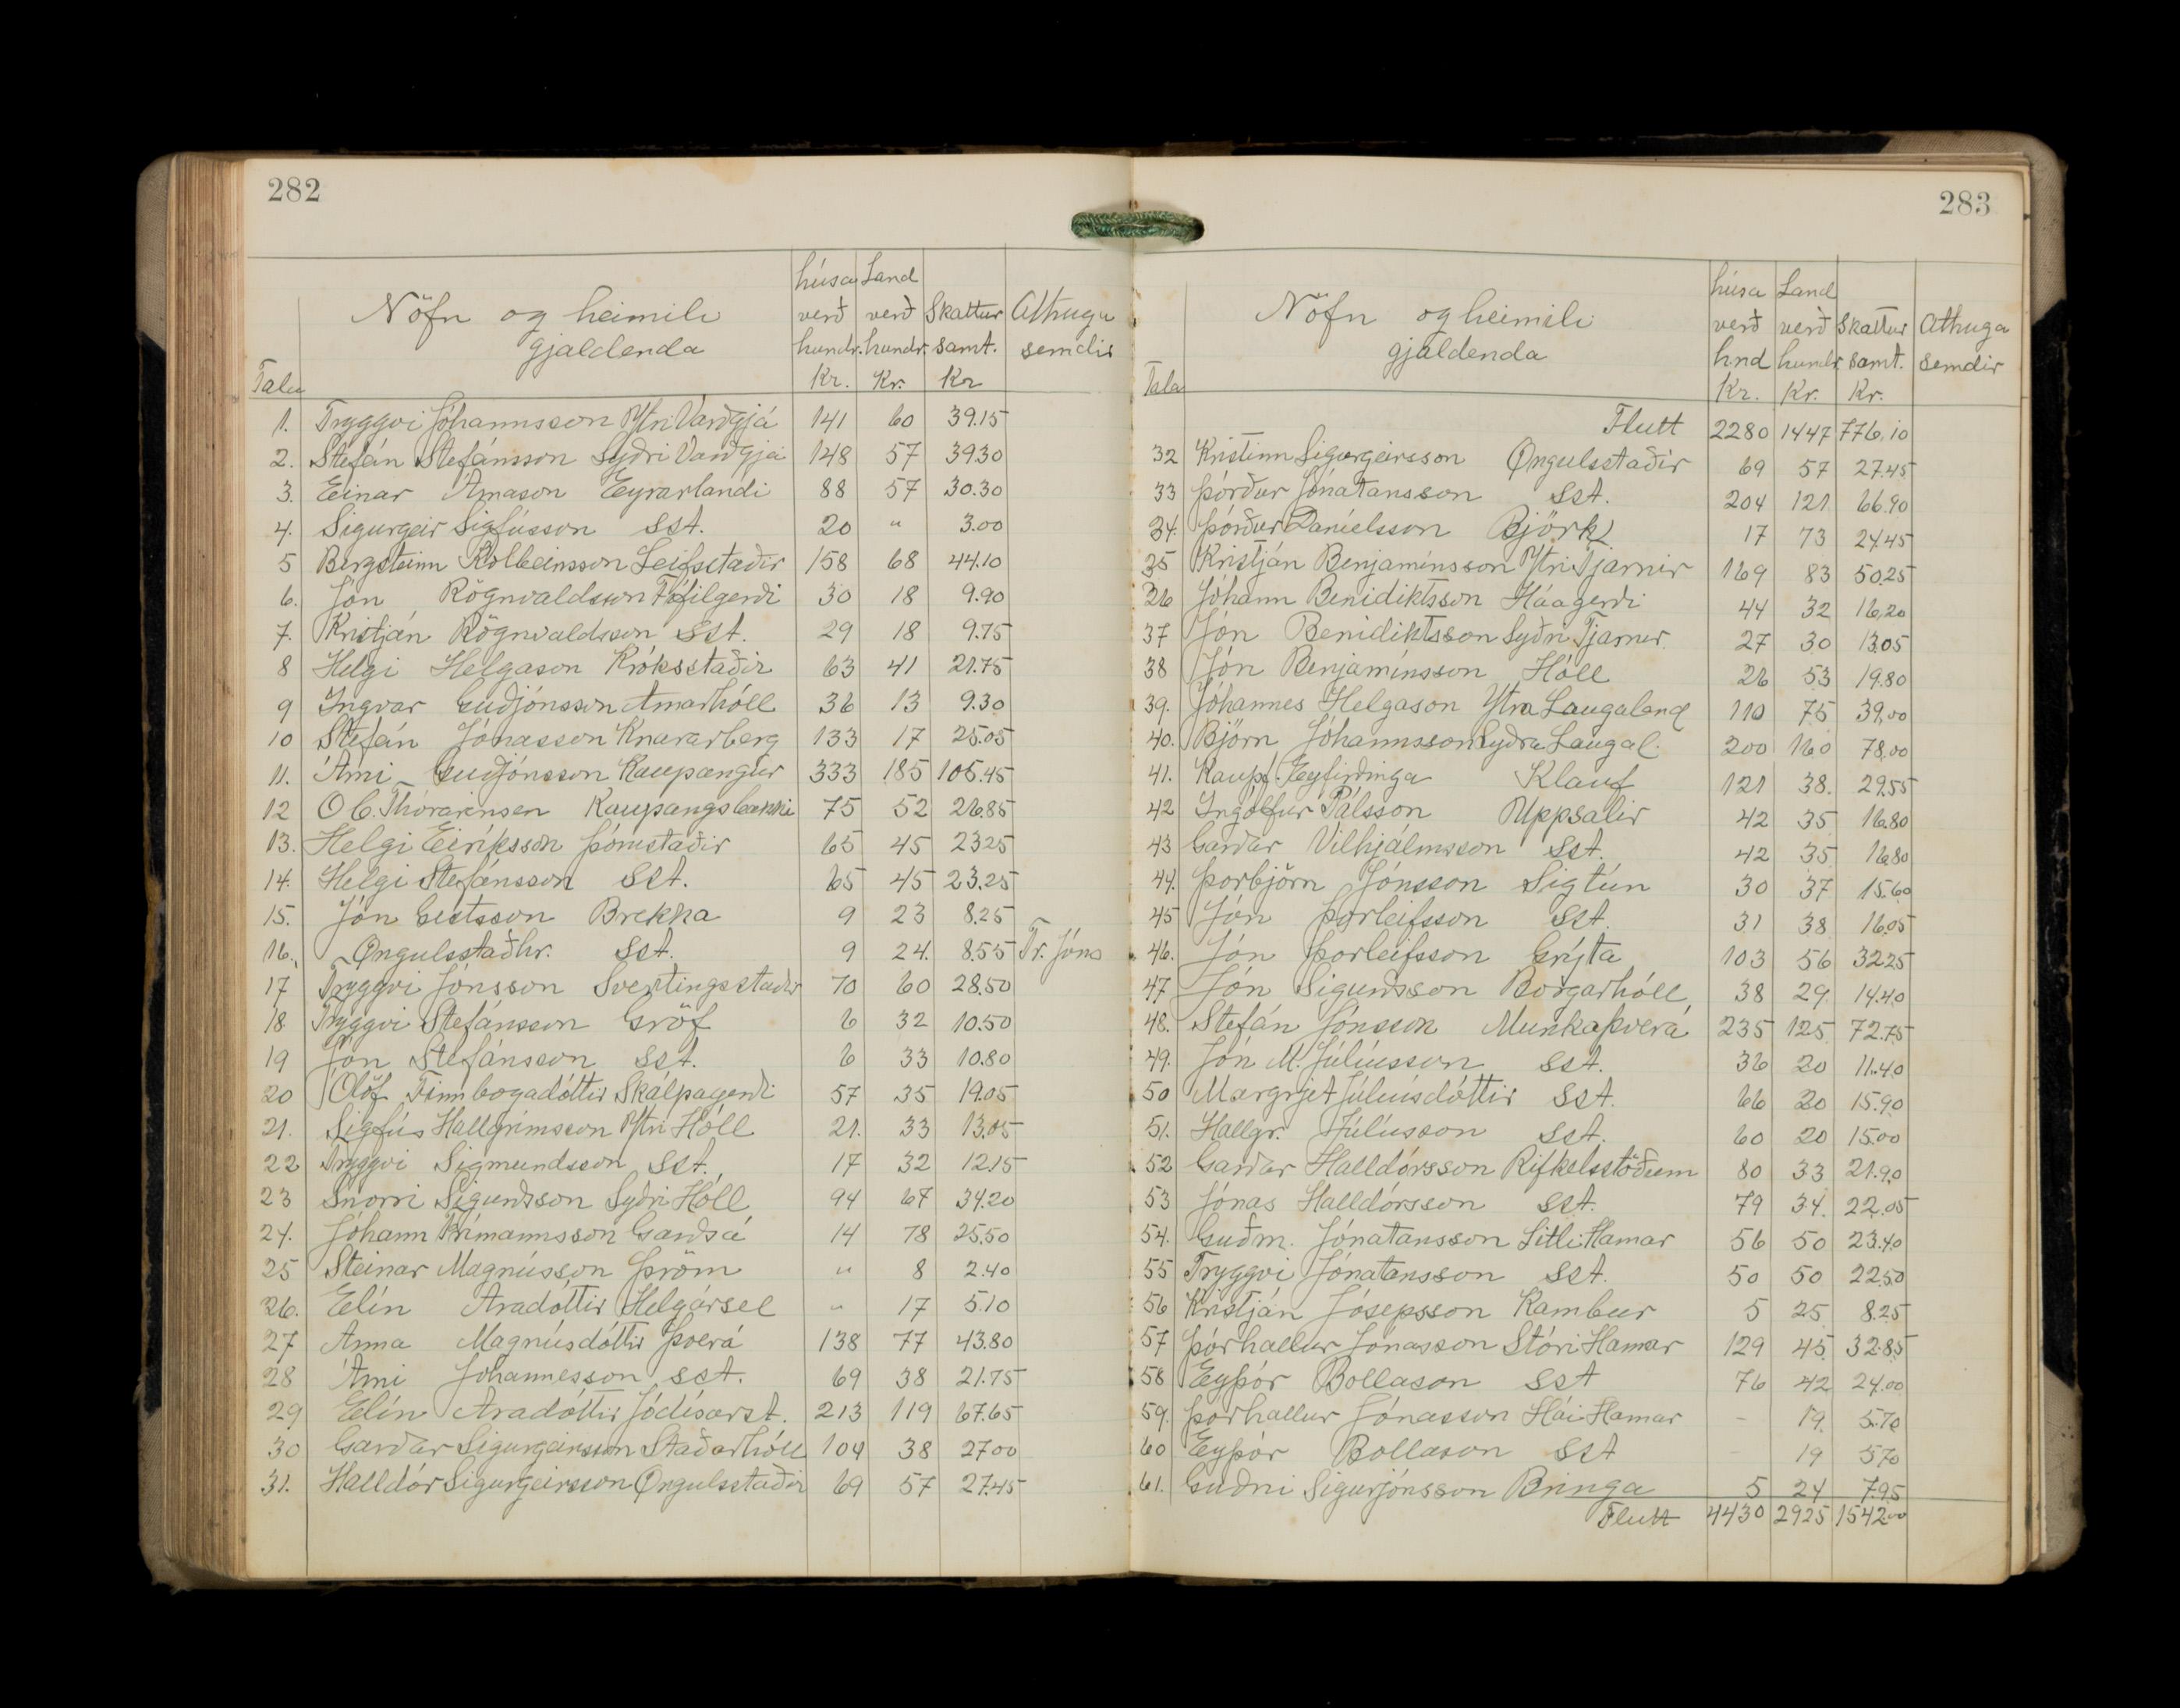 282
Nöfn og heimili gjaldenda
Tala
húsa verð hundr. Kr.
Land verð hundr. Kr.
Skattur samt. Kr
Athuga semdir
1. Tryggvi Jóhannsson Ytri Varðgjá 141 60 39.15
2. Stefán Stefánsson Syðri Varðgjá 148 57 39.30
3. Einar Árnason Eyrarlandi 88 57 30.30
4. Sigurgeir Sigfússon sst. 20 " 3.00
5 Bergsteinn Kolbeinsson Leifsstaðir 158 68 44.10
6. Jón Rögnvaldsson Fífilgerði 30 18 9.90
7. Kristján Rögnvaldsson sst. 29 18 9.75
8 Helgi Helgason Króksstaðir 63 41 21.75
9 Ingvar Guðjónsson Arnarhóll 36 13 9.30
10 Stefán Jónasson Knararberg 133 17 25.05
11. Árni Guðjónsson Kaupangur 333 185 105.45
12 O C. Thorarensen Kaupangsbakki 75 52 26.85
13. Helgi Eiríksson Þórustaðir 65 45 23.25
14. Helgi Stefánsson sst. 65 45 23.25
15. Jón Gestsson Brekka 9 23 8.25
16. Öngulsstaðhr. sst. 9 24. 8.55 Tr. Jóns
17 Tryggvi Jónsson Svertingsstaðir 70 60 28.50
18 Tryggvi Stefánsson Gröf 6 32 10.50
19 Jón Stefánsson sst. 6 33 10.80
20 Ólöf Finnbogadóttir Skálpagerði 57 35 19.05
21. Sigfús Hallgrímsson Ytri Hóll 21. 33 13.05
22 Tryggvi Sigmundsson sst. 17 32 12.15
23 Snorri Sigurðsson Syðri Hóll 94 67 34.20
24. Jóhann Frímannsson Garðsá 14 78 25.50
25 Steinar Magnússon Þröm " 8 2.40
26. Elín Aradóttir Helgársel " 17 5.10
27 Anna Magnúsdóttir Þverá 138 77 43.80
28 Árni Jóhannesson sst. 69 38 21.75
29 Elín Aradóttir Jódísarst. 213 119 67.65
30 Garðar Sigurgeirsson Staðarhóll 104 38 27.00
31. Halldór Sigurgeirsson Öngulsstaðir 69 57 27.45
283
Nöfn og heimili gjaldenda
Tala
húsa verð hnd Kr.
Land verð hundr. Kr.
Skattur samt. Kr.
Athuga semdir
Flutt 2280 1447 776,10
32 Kristinn Sigurgeirsson Öngulsstaðir 69 57 27.45
33 Þórður Jónatansson sst. 204 121 66.90
34. Þórður Daníelsson Björk 17 73 24.45
35 Kristján Benjamínsson Ytri Tjarnir 169 83 50.25
36 Jóhann Benidiktsson Háagerði 44 32 16,20
37 Jón Benidiktsson Syðri Tjarnir 27 30 13.05
38 Jón Benjamínsson Hóll 26 53 19.80
39. Jóhannes Helgason Ytra Laugaland 110 75 39,00
40. Björn Jóhannsson Syðra Laugal. 200 160 78,00
41. Kaupf. Eyfirðinga Klauf 121 38. 29.55
42 Ingólfur Pálsson Uppsalir 42 35 16.80
43 Garðar Vilhjálmsson sst. 42 35 16.80
44. Þorbjörn Jónsson Sigtún 30 37 15.60
45 Jón Þorleifsson sst. 31 38 16.05
46. Jón Þorleifsson Grýta 103 56 32.25
47 Jón Sigurðsson Borgarhóll 38 29. 14.40
48. Stefán Jónsson Munkaþverá 235 125 72.75
49. Jón M. Júlíusson sst. 36 20 11.40
50 Margrjet Júlíusdóttir sst. 66 20 15.90
51. Hallgr. Júlíusson sst. 60 20 15.00
52 Garðar Halldórsson Rifkelsstöðum 80 33 21.90
53 Jónas Halldórsson sst. 79 34. 22.05
54. Guðm. Jónatansson Litli Hamar 56 50 23.40
55 Tryggvi Jónatansson sst. 50 50 22.50
56 Kristján Jósepsson Kambur 5 25 8.25
57 Þórhallur Jónasson Stóri Hamar 129 45 32.85
58 Eyþór Bollason sst 76 42 24.00
59. Þórhallur Jónasson Hái Hamar - 19. 5.70
60 Eyþór Bollason sst - 19 5.70
61. Guðni Sigurjónsson Bringa 5 24 7.95
Flutt 4430 2925 1542.00